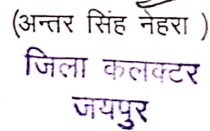 (अन्तर सिंह नेहरा )
जिला कलक्टर
जयपुर